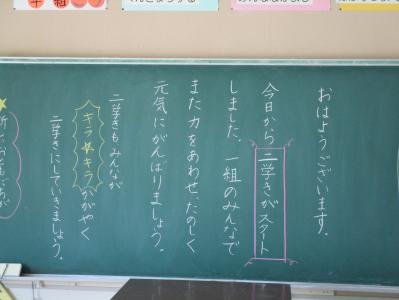 おはようございます。
今日から二学きがスタート
しました。一組のみんなで
また力をあわせ、たのしく
元気にがんばりましょう。
二学きもみんなが
キラ☆キラかがやく
二学きにしていきましょう。